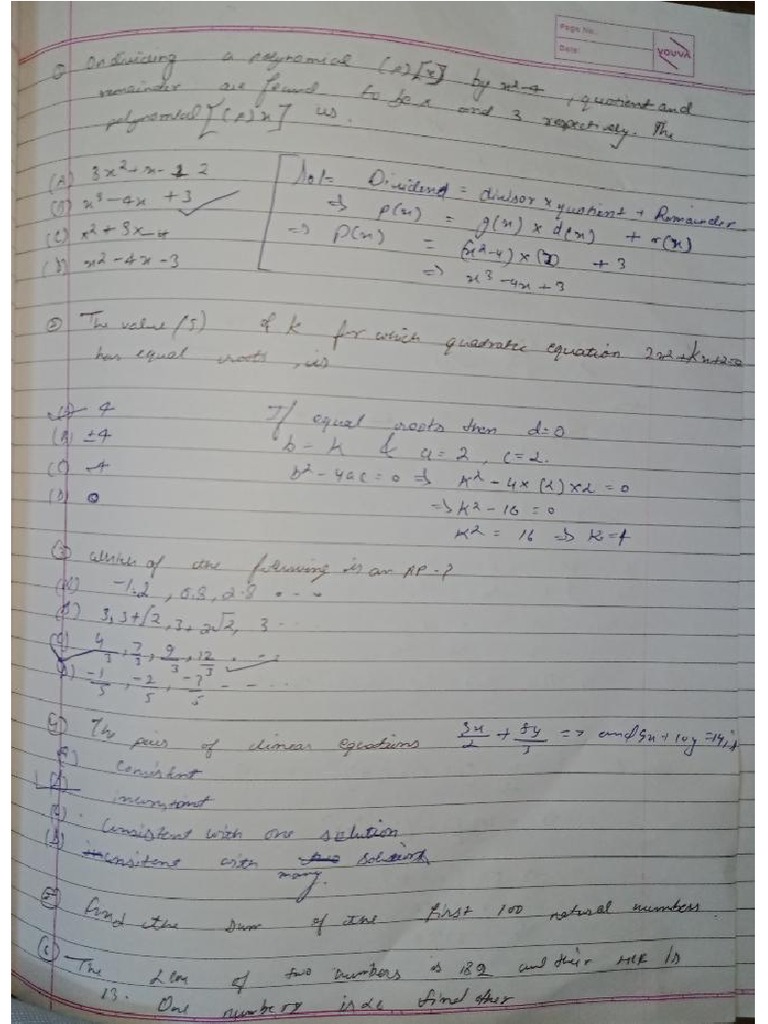 Page No.
Date:
YOUVA
① On dividing a polynomial (p)[x] by x²-4, quotient and
remainder are found to be x and 3 respectively. The
polynomial [(p)x] is.
(A) 3x²+x-12
(B) x³-4x+3
(C) x²+3x-4
(D) x²-4x-3
Sol= Dividend = divisor × quotient + Remainder
⇒ p(x) = g(x) × d(x) + r(x)
⇒ p(x) = (x²-4) × (x) + 3
⇒ x³-4x+3
② The value(s) of k for which quadratic equation 2x²+kx+2=0
has equal roots, is
(A) 4
(B) ±4
(C) -4
(D) 0
If equal roots then d=0
b-k & a=2, c=2.
b²-4ac=0 ⇒ k²-4×(2)×2=0
⇒ k²-16=0
k²=16 ⇒ k=4
③ which of the following is an AP-?
(A) -1.2, 0.8, 2.8 ...
(B) 3, 3+√2, 3+2√2, 3 ...
(C) 4/3, 7/3, 9/3, 12/3 ...
(D) -1/5, -2/5, -3/5 ...
④ The pair of linear equations 3x/2 + 5y/3 = 7 and 9x+10y=14, is
consistent
inconsistent
consistent with one solution
(D) consitent with many solution
⑤ find the sum of the first 100 natural numbers.
⑥ The Lcm of two numbers is 182 and their HCF is
13. One number is 26 find other